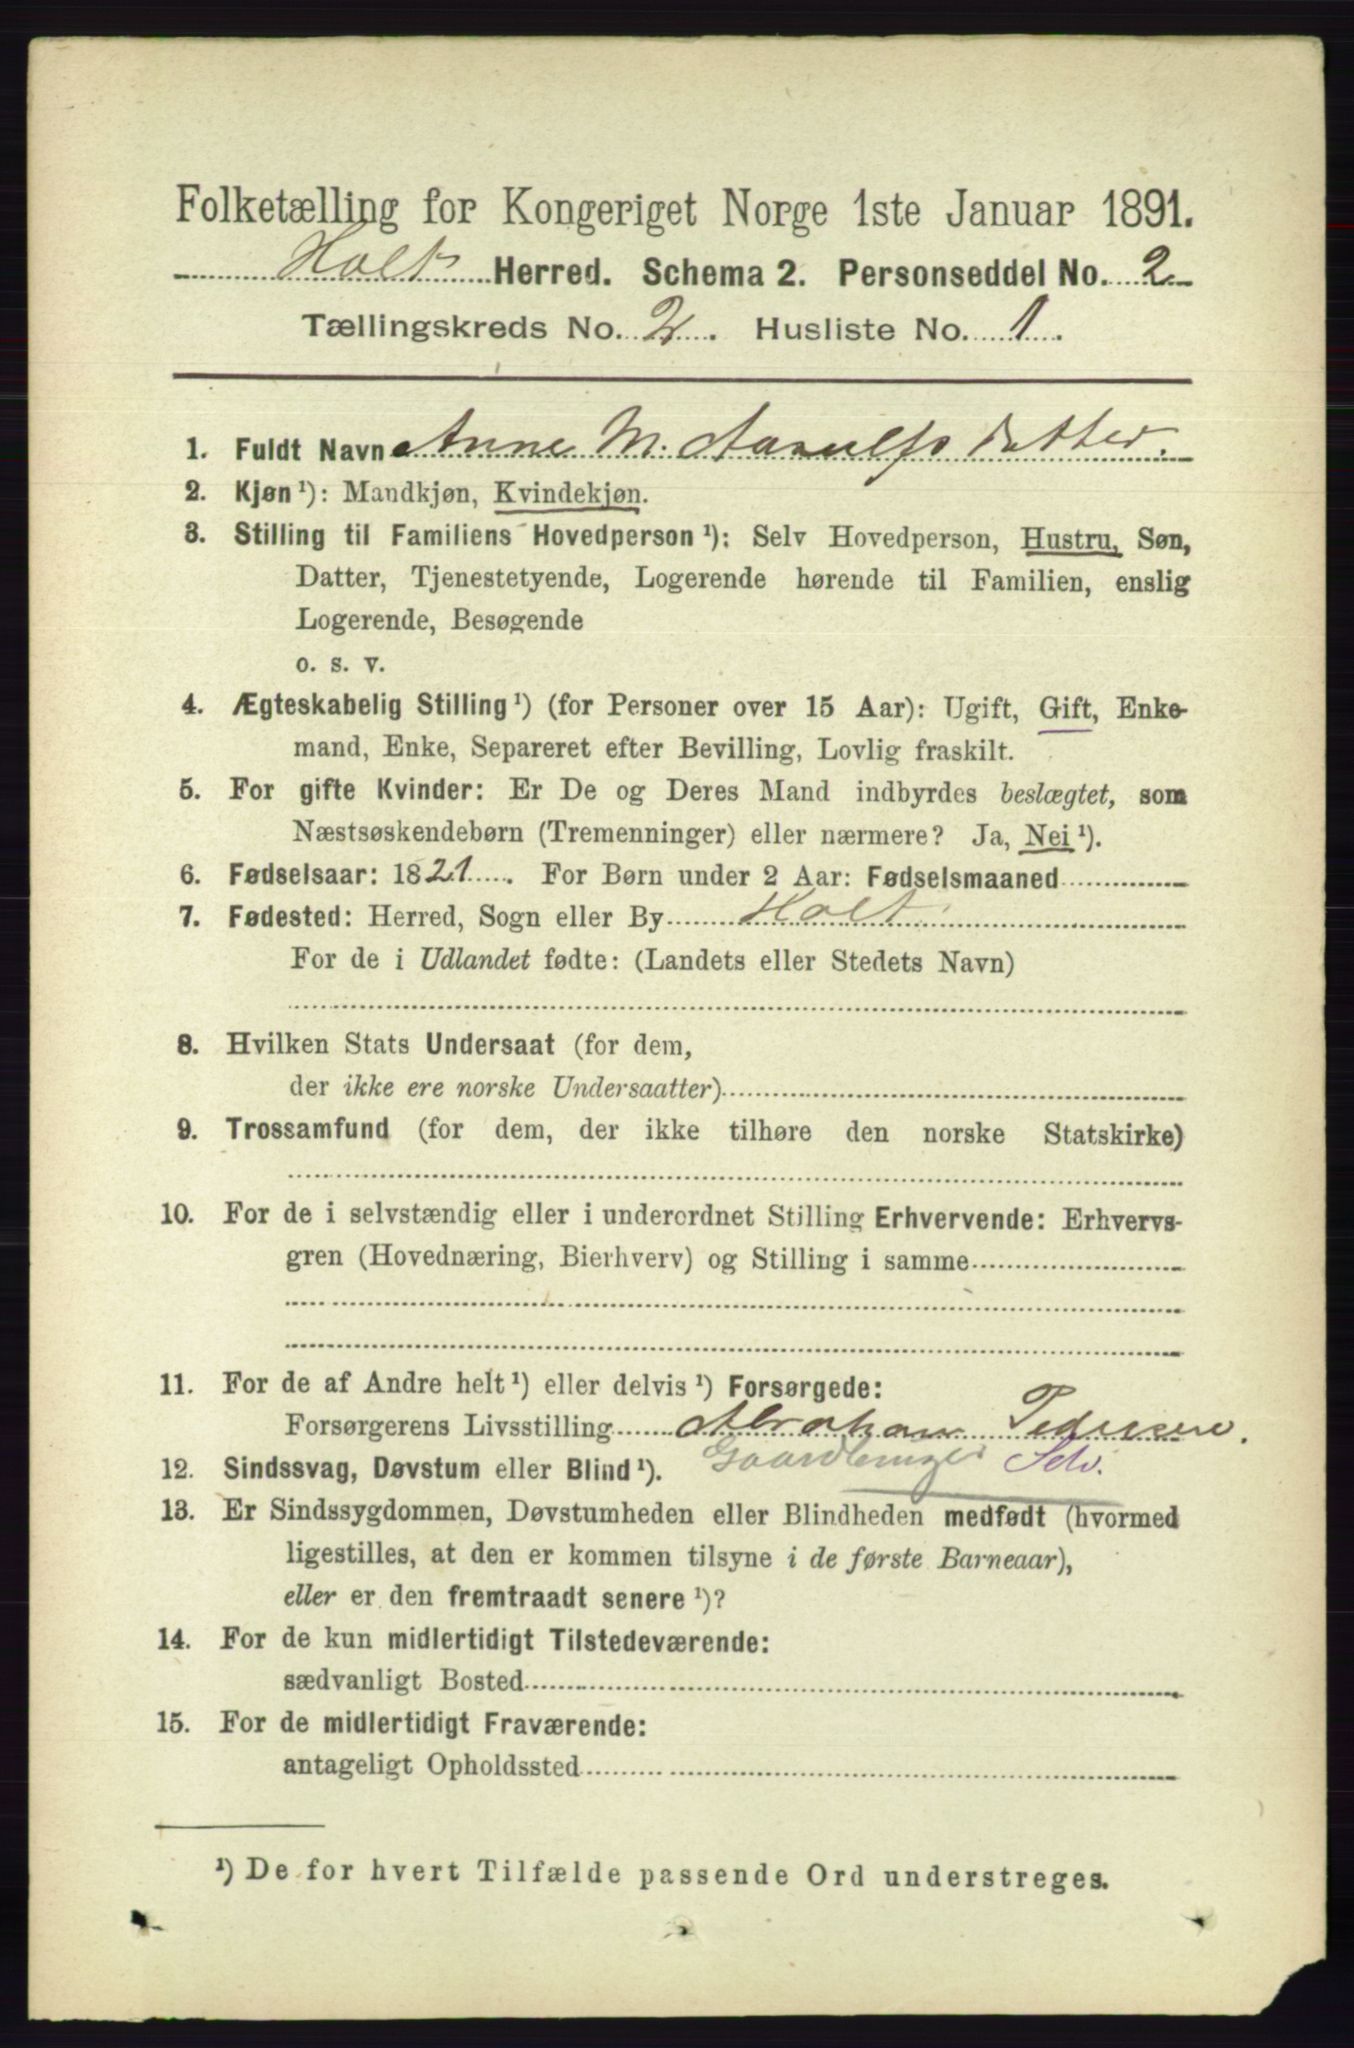 Folketælling for Kongeriget Norge 1ste Januar 1891.
Holt Herred. Schema 2. Personseddel No. 2
Tællingskreds No. 2. Husliste No. 1.
1. Fuldt Navn Anne M. Aanulfsdatter.
2. Kjøn ¹): Mandkjøn, Kvindekjøn.
3. Stilling til Familiens Hovedperson ¹): Selv Hovedperson, Hustru, Søn,
Datter, Tjenestetyende, Logerende hørende til Familien, enslig
Logerende, Besøgende
o. s. v.
4. Ægteskabelig Stilling ¹) (for Personer over 15 Aar): Ugift, Gift, Enke-
mand, Enke, Separeret efter Bevilling, Lovlig fraskilt.
5. For gifte Kvinder: Er De og Deres Mand indbyrdes beslægtet, som
Næstsøskendebørn (Tremenninger) eller nærmere? Ja, Nei ¹).
6. Fødselsaar: 1821. For Børn under 2 Aar: Fødselsmaaned
7. Fødested: Herred, Sogn eller By Holt
For de i Udlandet fødte: (Landets eller Stedets Navn)
8. Hvilken Stats Undersaat (for dem,
der ikke ere norske Undersaatter)
9. Trossamfund (for dem, der ikke tilhøre den norske Statskirke)
10. For de i selvstændig eller i underordnet Stilling Erhvervende: Erhvervs-
gren (Hovednæring, Bierhverv) og Stilling i samme
11. For de af Andre helt ¹) eller delvis ¹) Forsørgede:
Forsørgerens Livsstilling Abraham Pedersen.
Gaardbruger Selv.
12. Sindssvag, Døvstum eller Blind ¹).
13. Er Sindssygdommen, Døvstumheden eller Blindheden medfødt (hvormed
ligestilles, at den er kommen tilsyne i de første Barneaar),
eller er den fremtraadt senere ¹)?
14. For de kun midlertidigt Tilstedeværende:
sædvanligt Bosted
15. For de midlertidigt Fraværende:
antageligt Opholdssted
¹) De for hvert Tilfælde passende Ord understreges.